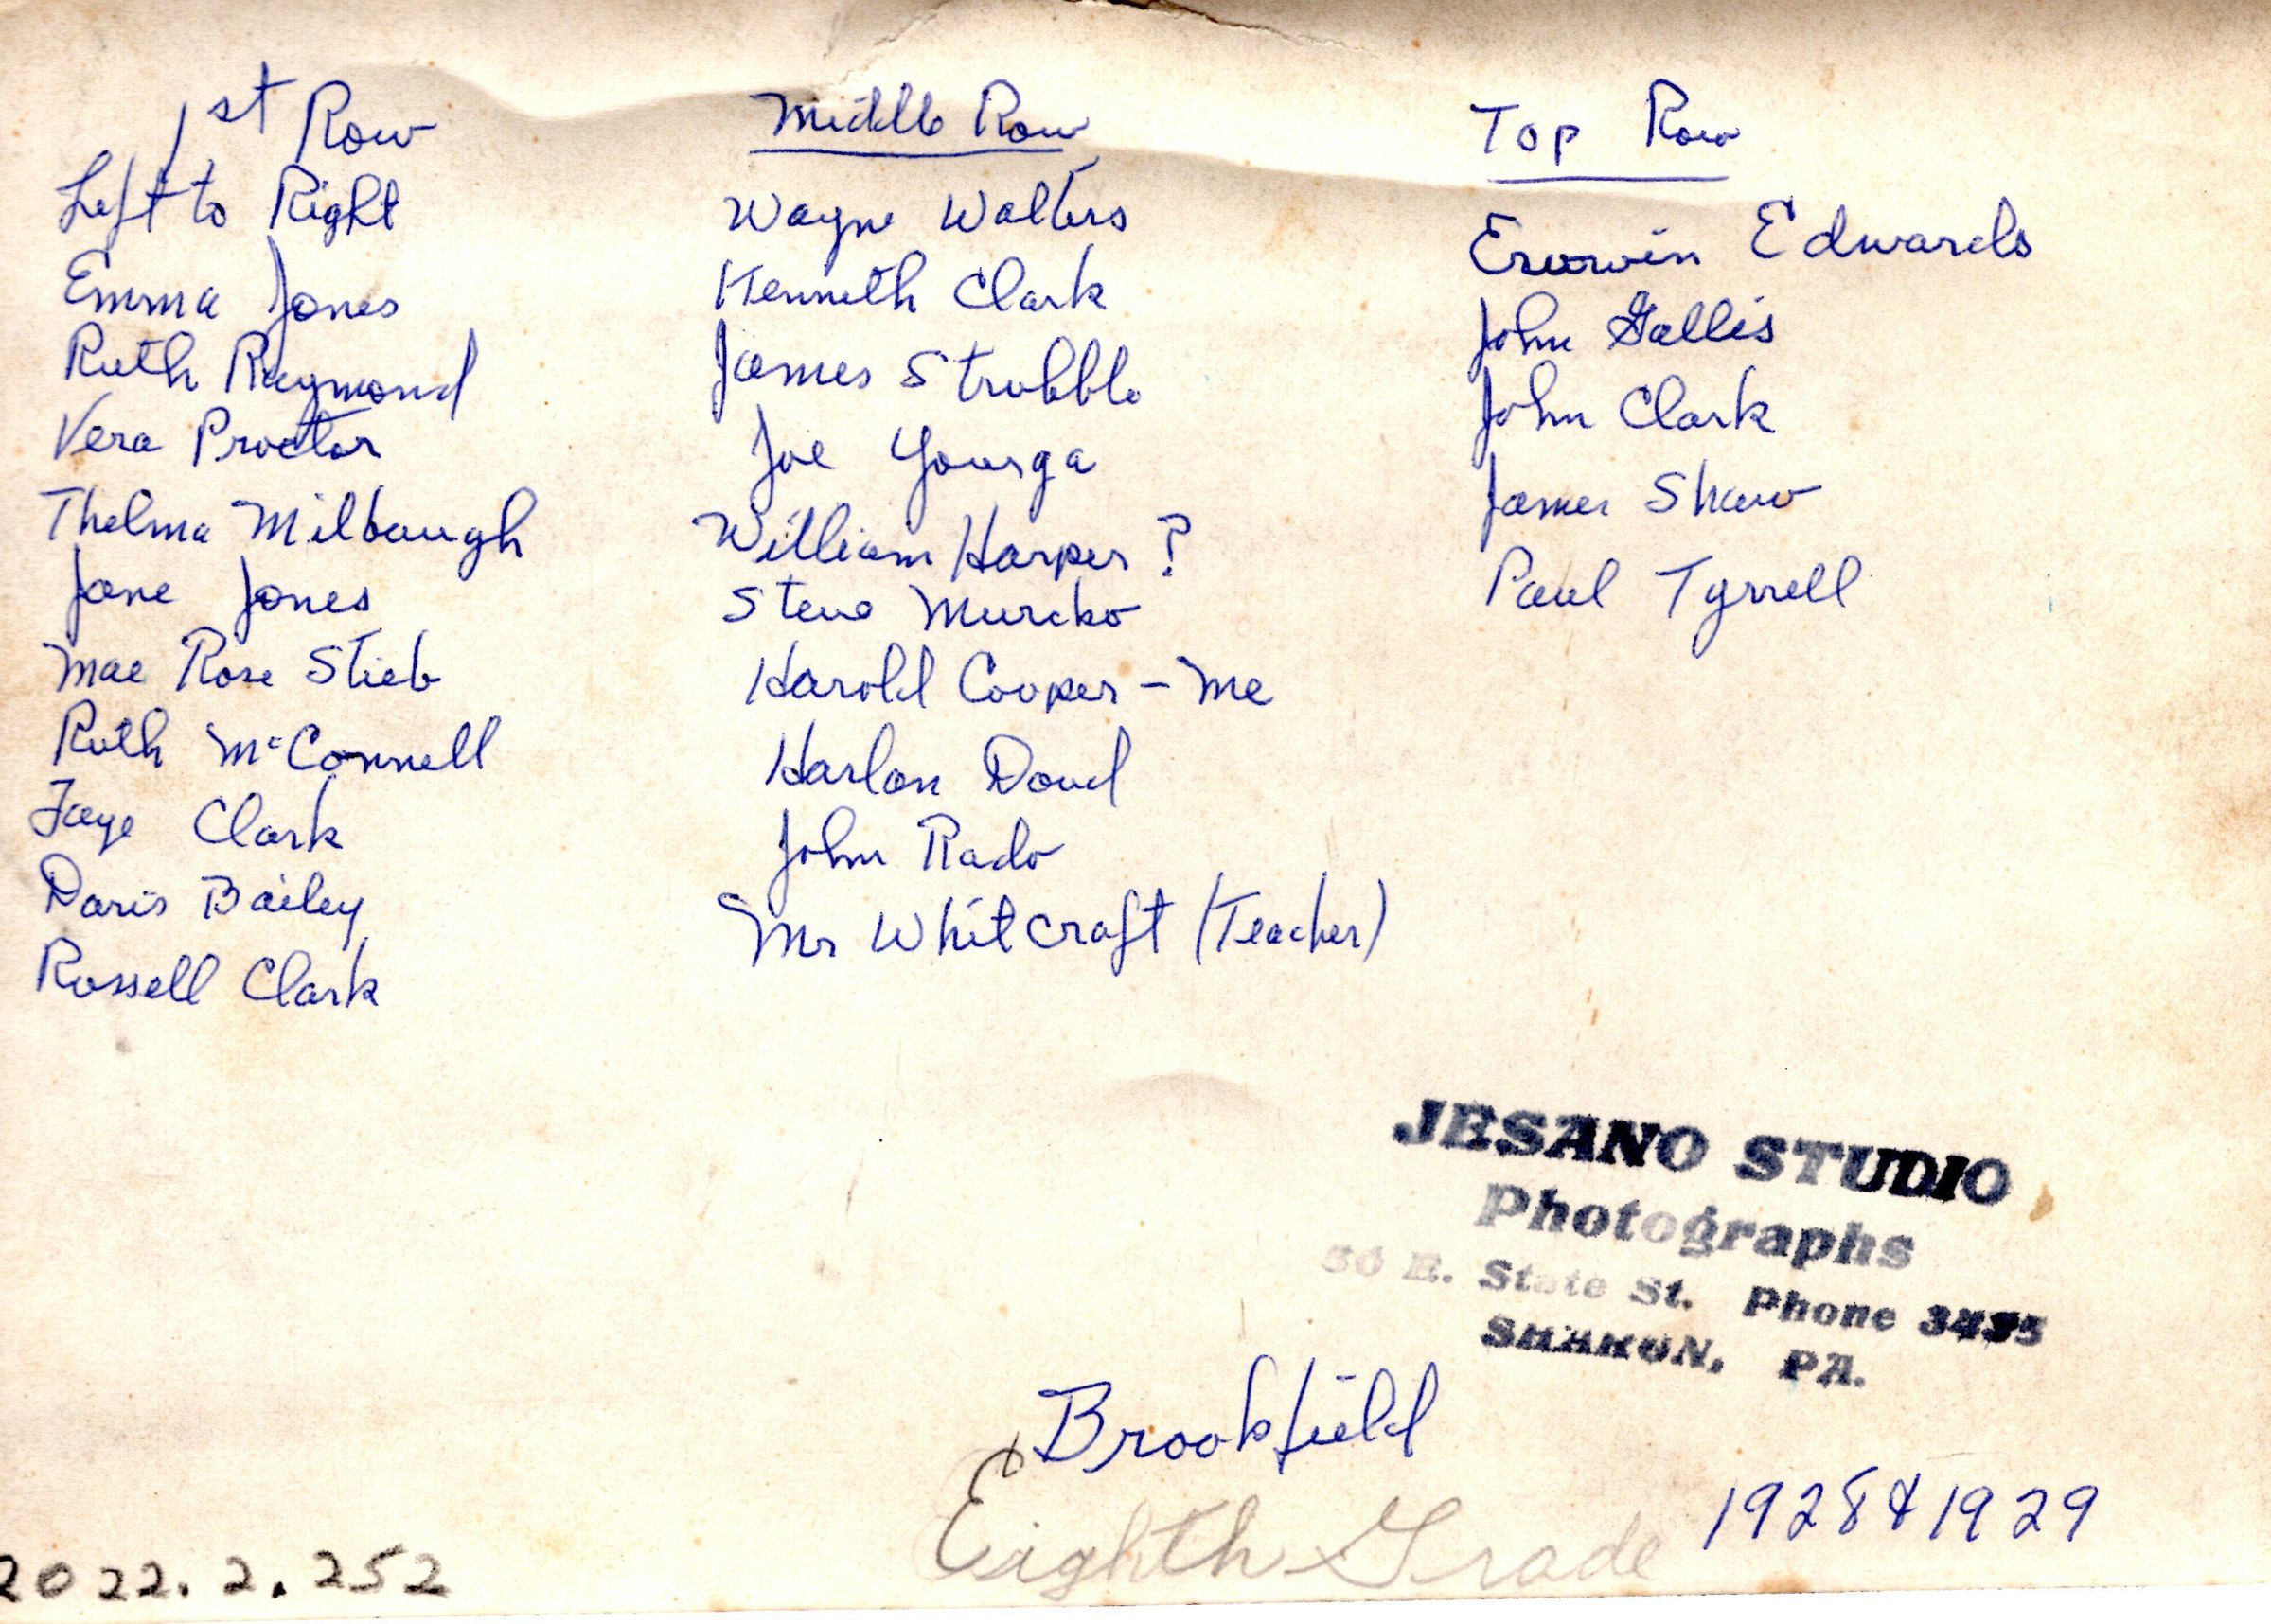 1st Row
Left to Right
Emma Jones
Ruth Raymond
Vera Proctor
Thelma Milbaugh
Jane Jones
Mae Rose Stieb
Ruth McConnell
Faye Clark
Doris Bailey
Russell Clark
Middle Row
Wayne Walters
Kenneth Clark
James Strobble
Joe Yourga
William Harper ?
Steve Murcko
Harold Cooper - Me
Harlan Doud
John Rado
Mr Whitcraft (Teacher)
Top Row
Erwin Edwards
John Gallis
John Clark
James Shaw
Paul Tyrrell
JESANO STUDIO
Photographs
36 E. State St. Phone
SHARON, PA.
Brookfield
Eighth Grade
1928 & 1929
2022.2.252